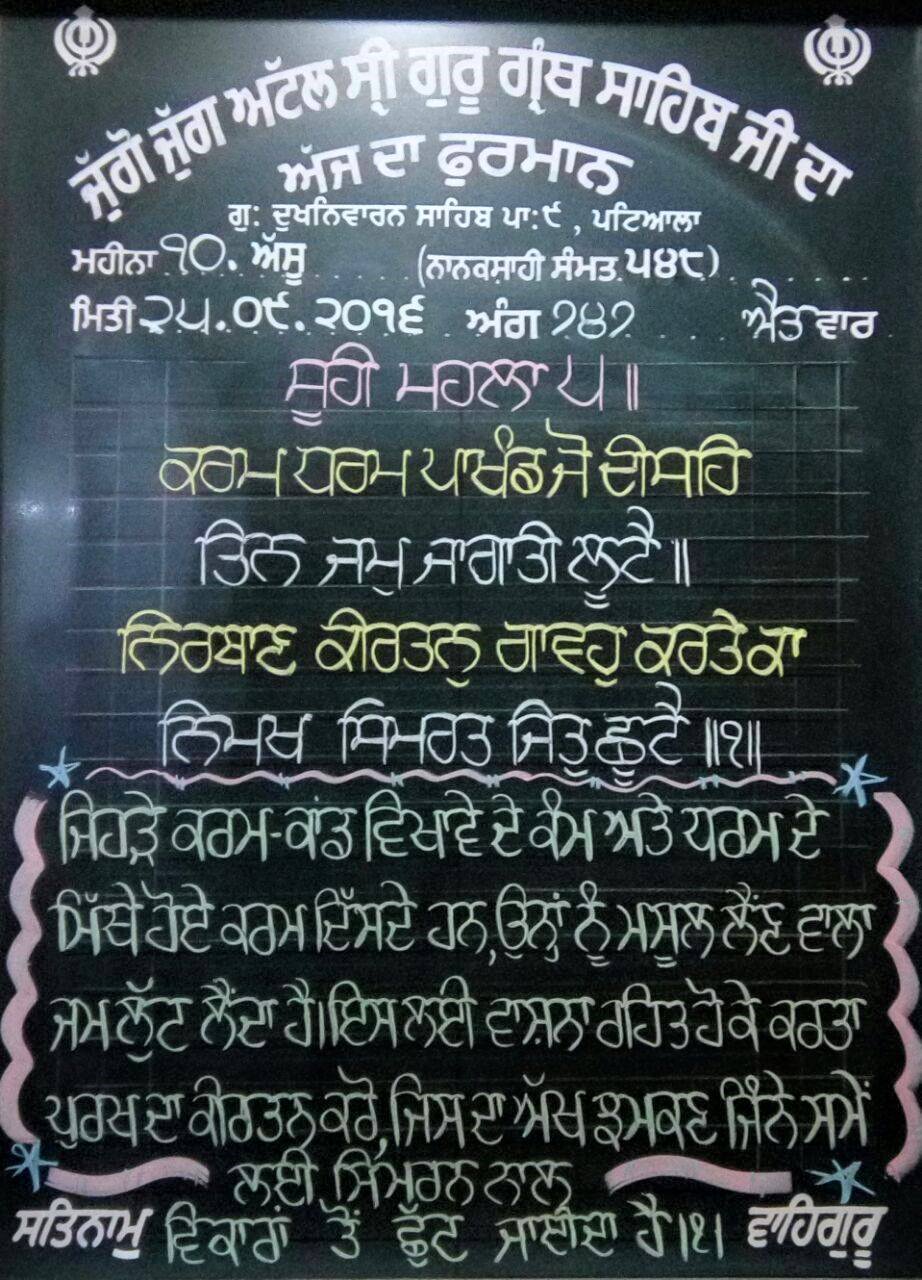 ਜੁੱਗੋ ਜੁੱਗ ਅਟੱਲ ਸ੍ਰੀ ਗੁਰੂ ਗ੍ਰੰਥ ਸਾਹਿਬ ਜੀ ਦਾ
ਅੱਜ ਦਾ ਫੁਰਮਾਨ
ਗੁ: ਦੁਖਨਿਵਾਰਨ ਸਾਹਿਬ ਪਾ:੯ , ਪਟਿਆਲਾ
ਮਹੀਨਾ ੧੦. ਅੱਸੂ (ਨਾਨਕਸ਼ਾਹੀ ਸੰਮਤ ੫੪੮)
ਮਿਤੀ ੨੫.੦੯.੨੦੧੬ ਅੰਗ ੭੪੭ ਐਤ ਵਾਰ
ਸੂਹੀ ਮਹਲਾ ੫ ॥
ਕਰਮ ਧਰਮ ਪਾਖੰਡ ਜੋ ਦੀਸਹਿ
ਤਿਨ ਜਮੁ ਜਾਗਾਤੀ ਲੂਟੈ ॥
ਨਿਰਬਾਣ ਕੀਰਤਨੁ ਗਾਵਹੁ ਕਰਤੇ ਕਾ
ਨਿਮਖ ਸਿਮਰਤ ਜਿਤੁ ਛੂਟੈ ॥੧॥
ਜਿਹੜੇ ਕਰਮ-ਕਾਂਡ ਵਿਖਾਵੇ ਦੇ ਕੰਮ ਅਤੇ ਧਰਮ ਦੇ
ਮਿੱਥੇ ਹੋਏ ਕਰਮ ਦਿੱਸਦੇ ਹਨ, ਉਨ੍ਹਾਂ ਨੂੰ ਮਸੂਲ ਲੈਂਣ ਵਾਲਾ
ਜਮ ਲੁੱਟ ਲੈਂਦਾ ਹੈ। ਇਸ ਲਈ ਵਾਸ਼ਨਾ ਰਹਿਤ ਹੋ ਕੇ ਕਰਤਾ
ਪੁਰਖ ਦਾ ਕੀਰਤਨ ਕਰੋ, ਜਿਸ ਦਾ ਅੱਖ ਝਮਕਣ ਜਿੰਨੇ ਸਮੇਂ
ਲਈ ਸਿਮਰਨ ਨਾਲ
ਸਤਿਨਾਮੁ ਵਿਕਾਰਾਂ ਤੋਂ ਛੁੱਟ ਜਾਈਦਾ ਹੈ।੧। ਵਾਹਿਗੁਰੂ